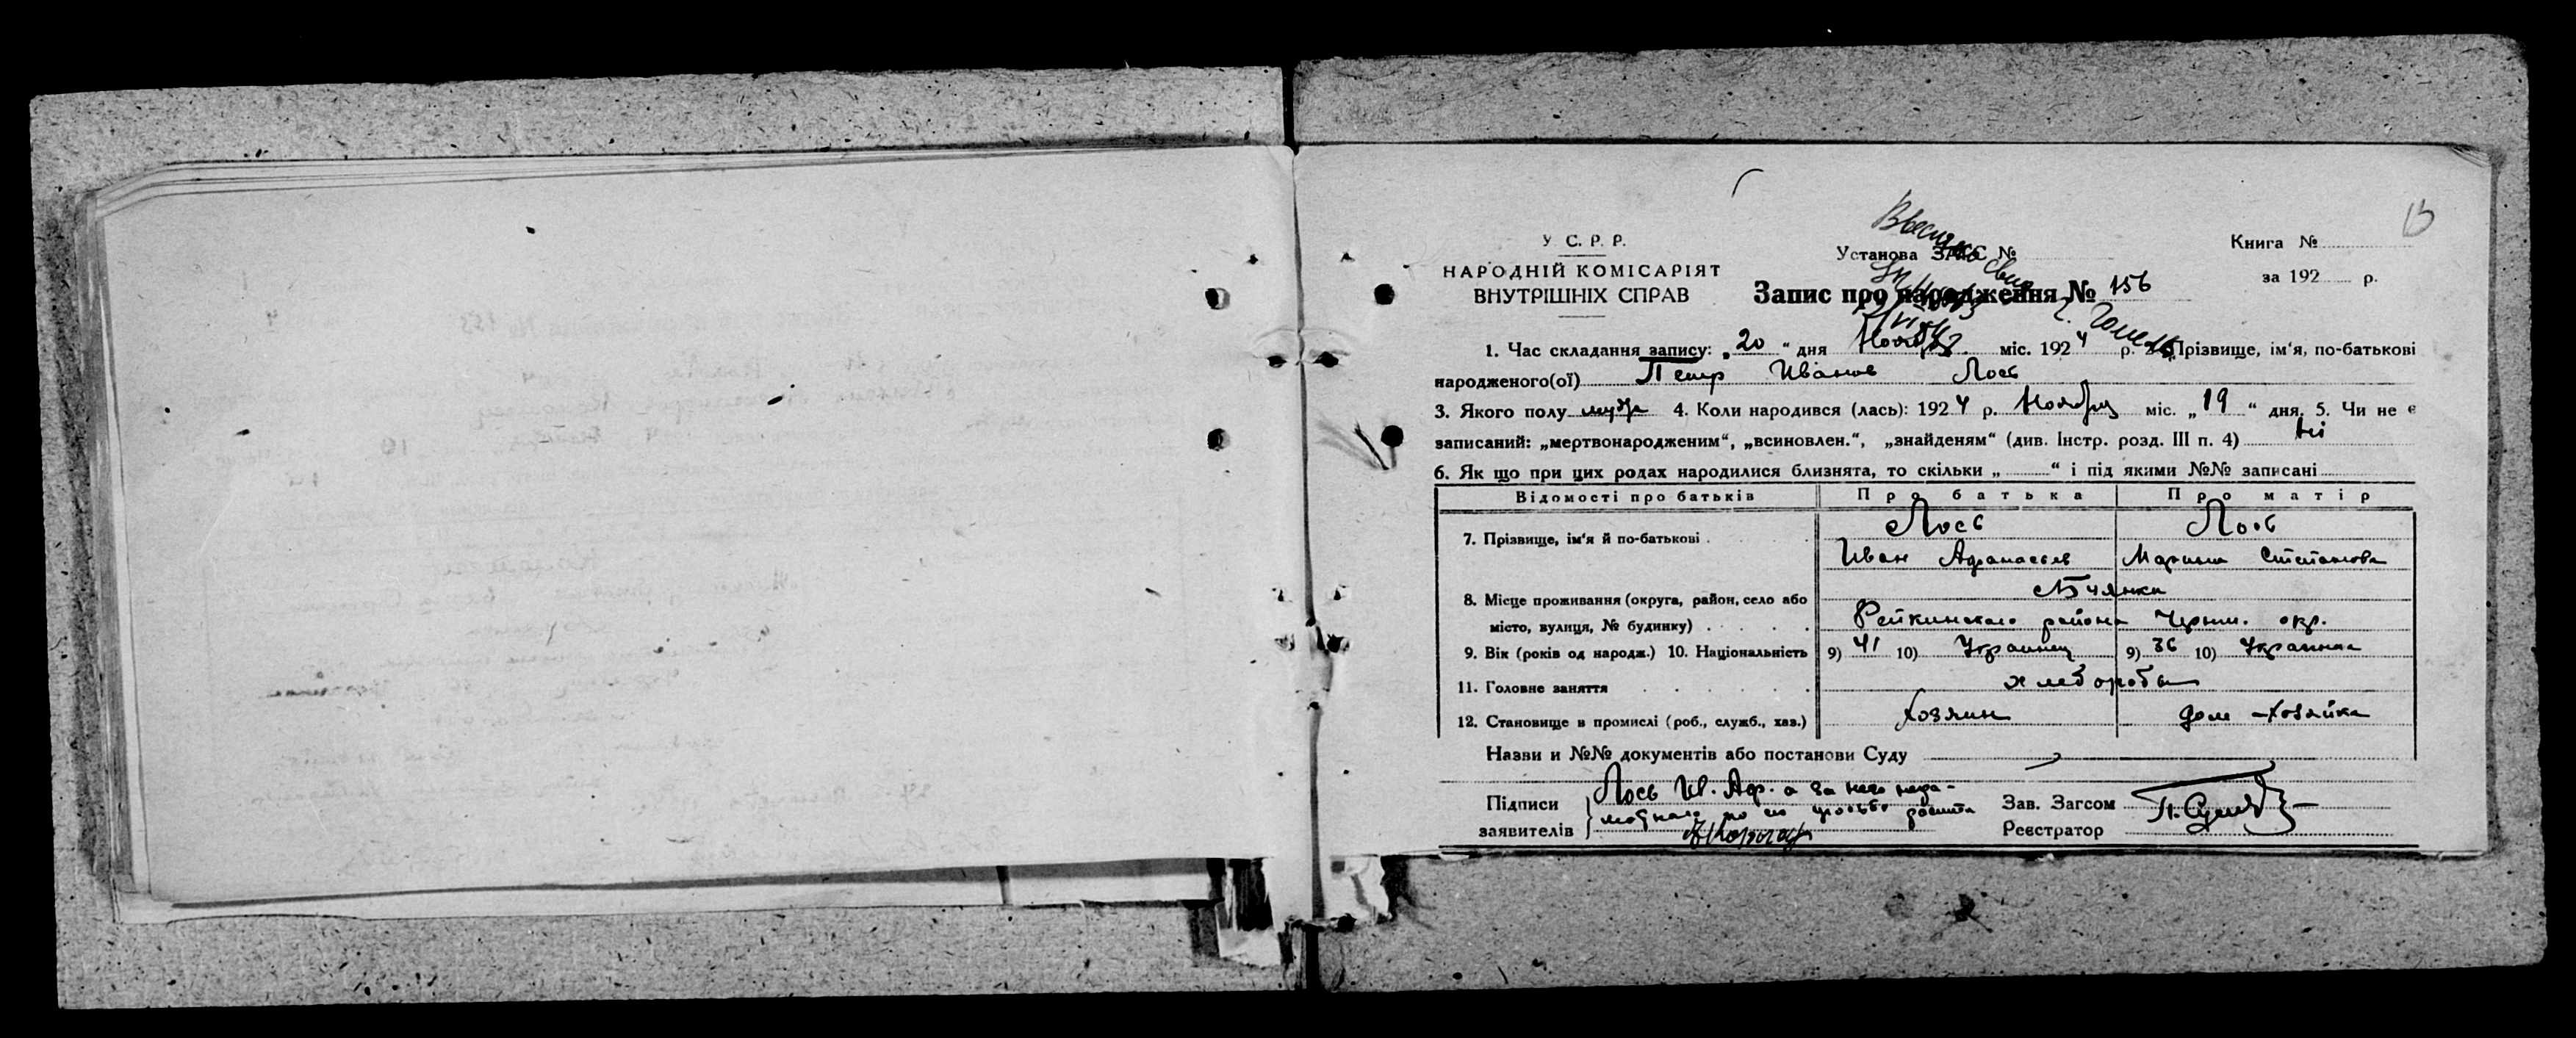 У С. Р. Р.
НАРОДНІЙ КОМІСАРІЯТ
ВНУТРІШНІХ СПРАВ
Установа ЗАГС №
Запис про народження № 156
Книга №
за 192 р.
1. Час складання запису: „20“ дня Ноября міс. 1924 р. 2. Прізвище, ім‘я, по-батькові
народженого(ої) Петр Иванов Лось
3. Якого полу муж 4. Коли народився (лась): 1924 р. Ноября міс. „19“ дня. 5. Чи не є
записаний: „мертвонародженим“, „всиновлен.“, „знайденям“ (див. Інстр. розд. III п. 4) ні
6. Як що при цих родах народилися близнята, то скільки „ “ і під якими №№ записані
Відомості про батьків Про батька Про матір
7. Прізвище, ім‘я й по-батькові Лось Лось
Иван Афанасьев Марина Степанова
8. Місце проживання (округа, район, село або
місто, вулиця, № будинку) района Черниг. окр.
9. Вік (років од народж.) 10. Національність 9) 41 10) Украинец 9) 36 10) Украинка
11. Головне заняття хлеборобы
12. Становище в промислі (роб., служб., хаз.) Хозяин дом-хозяйка
Назви и №№ документів або постанови Суду
Підписи
заявителів
Лось Ив. Аф. а за него негра-
мотного по его просьбе
Зав. Загсом
Реєстратор